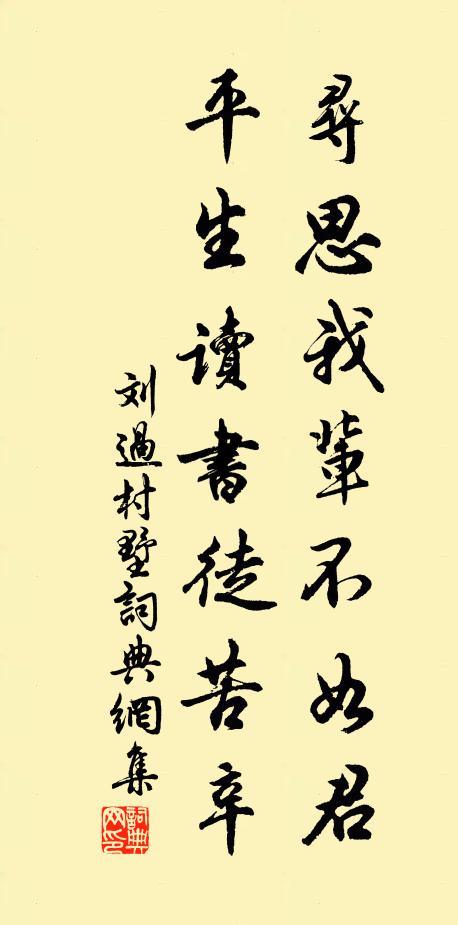 尋思我輩不如君
平生讀書徒苦辛
刘過村墅詞典網集
詞典网印